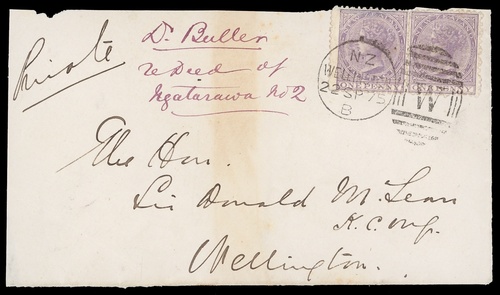 Private
Dr. Buller
re Deed of
Ngatarawa No 2
NZ
22 SP 75
B
The Hon.
Sir Donald McLean
K.C.M.G.
Wellington.